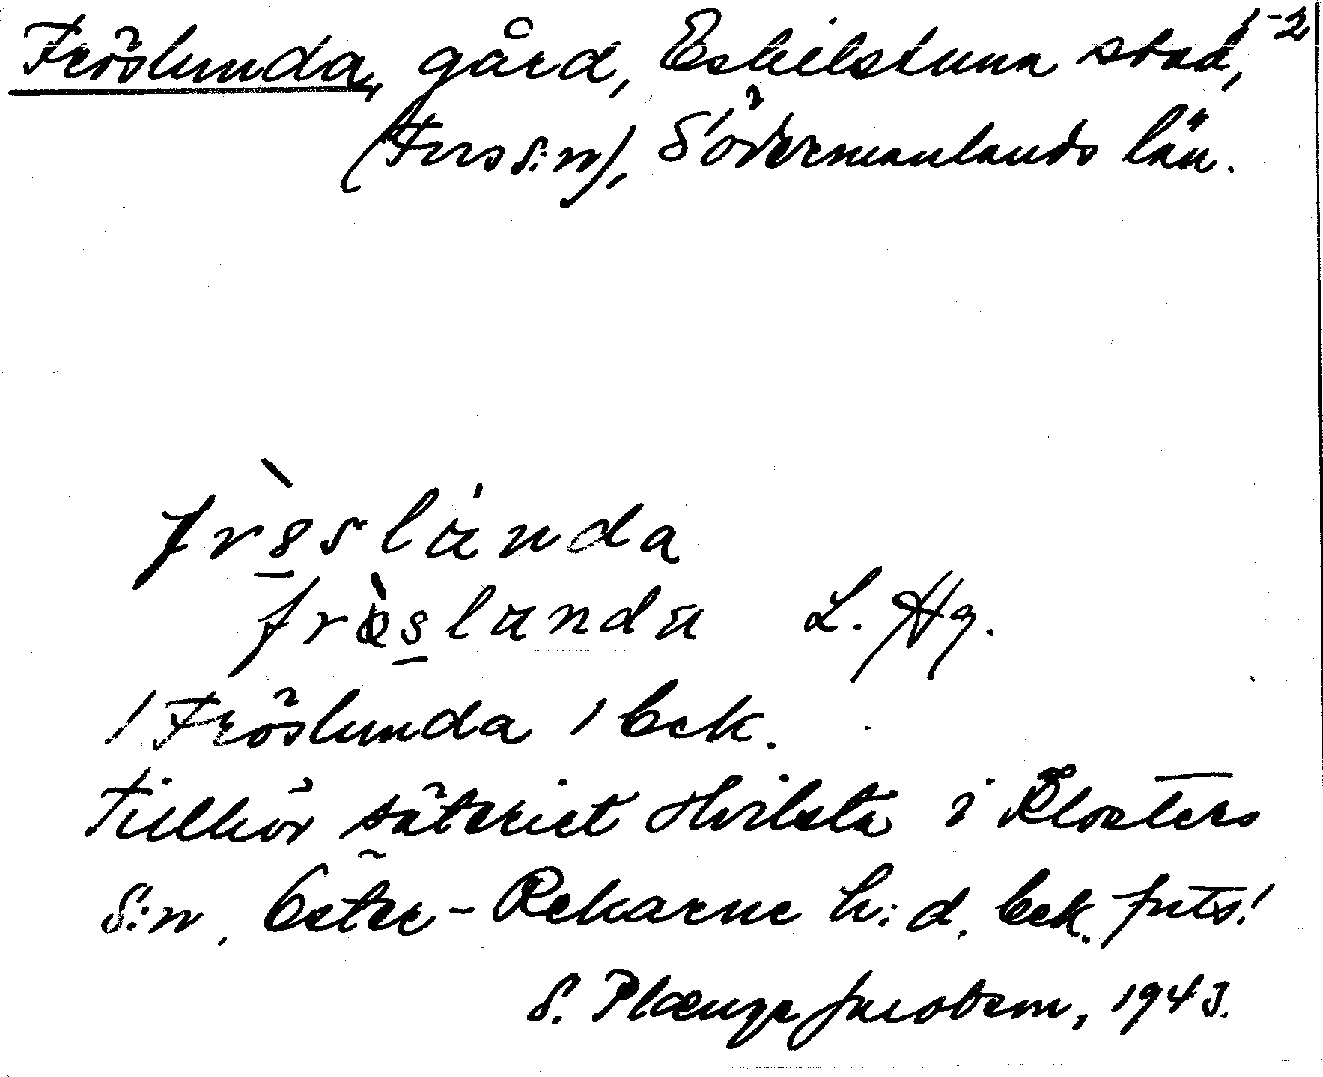 Fröslunda, gård, Eskilstuna stad, 1-2
(Fors s:n), Södermanlands län.
frö̀slúnda
frö̀slunda L. Hg.
1 Fröslunda 1 bek.
Tillhör säteriet Hvilsta i Klosters
s:n. Öster-Rekarne h:d. bek. puts!
S. Plænge Jacobson, 1943.